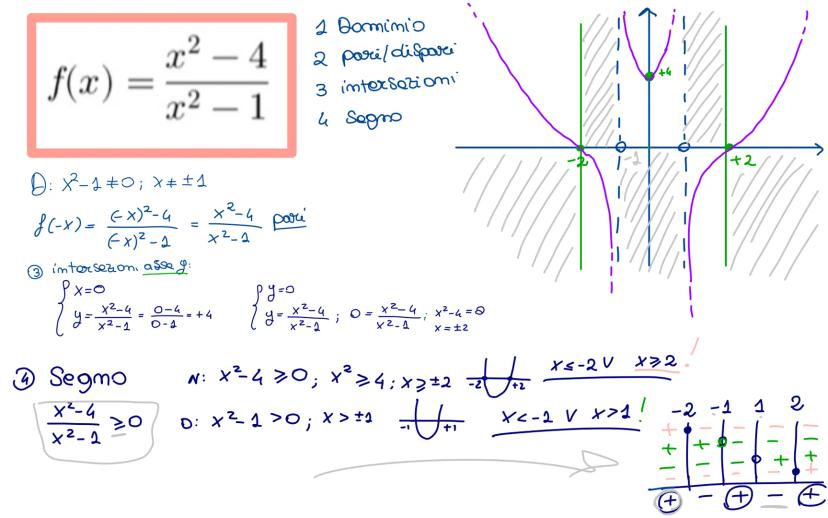 f(x) = \frac{x² − 4}{x² − 1}
1 Dominio
2 pari/dispari
3 intersezioni
4 Segno
+4
-2 -1 +2
D: x²-1≠0; x≠±1
f(-x) = \frac{(-x)²-4}{(-x)²-1} = \frac{x²-4}{x²-1} pari
③ intersezioni asse y:
{ x=0
{ y = \frac{x²-4}{x²-1} = \frac{0-4}{0-1} = +4
{ y=0
{ y = \frac{x²-4}{x²-1}; 0 = \frac{x²-4}{x²-1}; x²-4=0
x=±2
④ Segno
\frac{x²-4}{x²-1} ≥0
N: x²-4≥0; x²≥4; x≥±2 -2 +2 x≤-2 V x≥2 !
D: x²-1>0; x>±1 -1 +1 x<-1 V x>1 !
-2 -1 1 2
+ - - - +
+ + - + +
+ - + - +